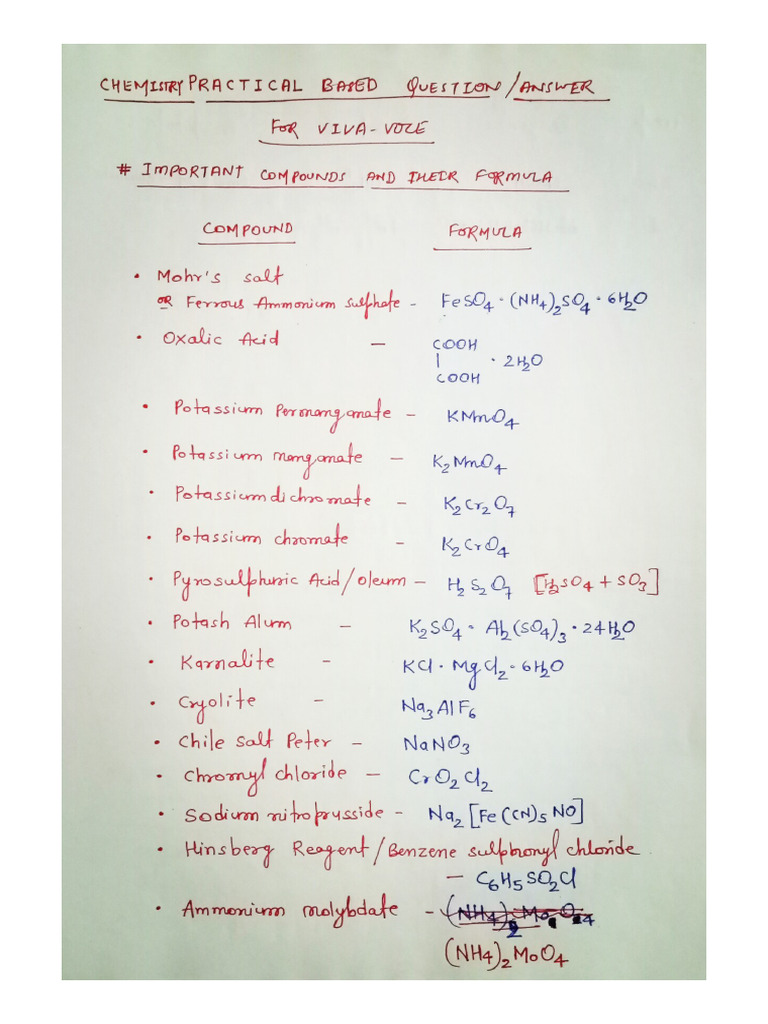 CHEMISTRY PRACTICAL BASED QUESTION/ANSWER
FOR VIVA-VOCE
# IMPORTANT COMPOUNDS AND THEIR FORMULA
COMPOUND FORMULA
• Mohr's salt
OR Ferrous Ammonium sulphate - FeSO₄·(NH₄)₂SO₄·6H₂O
• Oxalic Acid — COOH
| · 2H₂O
COOH
• Potassium Permanganate - KMnO₄
• Potassium manganate - K₂MnO₄
• Potassium dichromate - K₂Cr₂O₇
• Potassium chromate - K₂CrO₄
• Pyrosulphuric Acid/oleum - H₂S₂O₇ [H₂SO₄ + SO₃]
• Potash Alum - K₂SO₄·Al₂(SO₄)₃·24H₂O
• Karnalite - KCl·MgCl₂·6H₂O
• Cryolite - Na₃AlF₆
• Chile salt Peter - NaNO₃
• Chromyl chloride - CrO₂Cl₂
• Sodium nitroprusside - Na₂[Fe(CN)₅NO]
• Hinsberg Reagent/Benzene sulphonyl chloride
— C₆H₅SO₂Cl
• Ammonium molybdate -
(NH₄)₂MoO₄